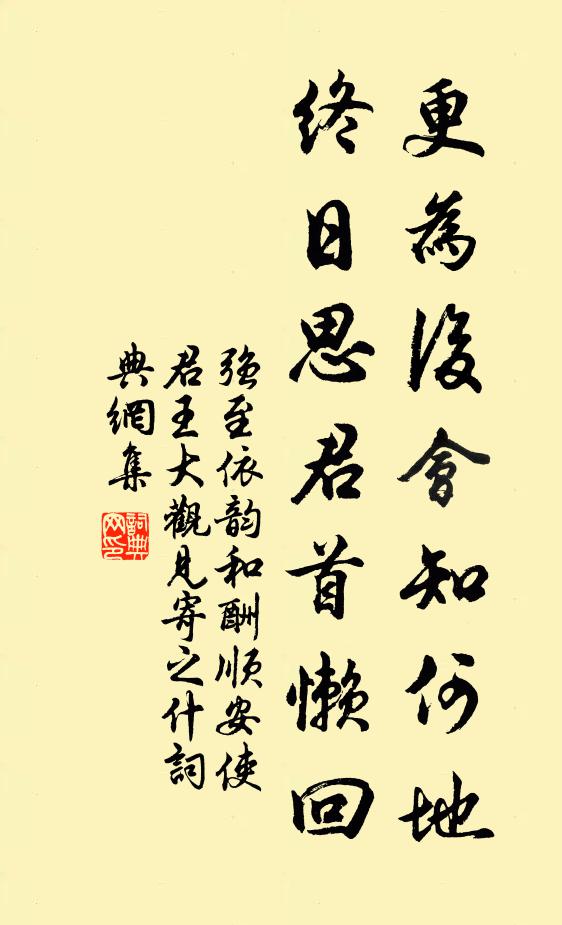 更為後會知何地
終日思君首懶回
強至依韵和酬順安使
君王大觀見寄之什詞
典網集
詞典
网印